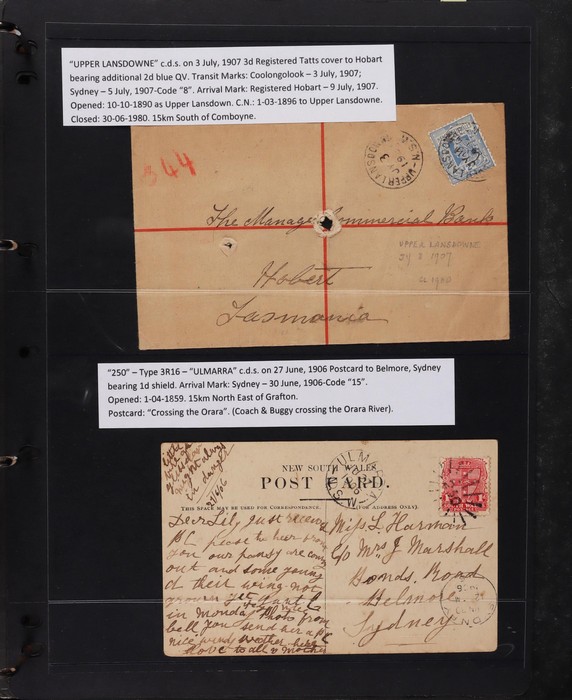 "UPPER LANSDOWNE" c.d.s. on 3 July, 1907 3d Registered Tatts cover to Hobart
bearing additional 2d blue QV. Transit Marks: Coolongolook – 3 July, 1907;
Sydney – 5 July, 1907-Code "8". Arrival Mark: Registered Hobart – 9 July, 1907.
Opened: 10-10-1890 as Upper Lansdown. C.N.: 1-03-1896 to Upper Lansdowne.
Closed: 30-06-1980. 15km South of Comboyne.
344
UPPER LANSDOWNE N.S.W
The Manager Commercial Bank
UPPER LANSDOWNE
JY 3 1907
Hobert
Tasmania
"250" – Type 3R16 – "ULMARRA" c.d.s. on 27 June, 1906 Postcard to Belmore, Sydney
bearing 1d shield. Arrival Mark: Sydney – 30 June, 1906-Code "15".
Opened: 1-04-1859. 15km North East of Grafton.
Postcard: "Crossing the Orara". (Coach & Buggy crossing the Orara River).
NEW SOUTH WALES
POST CARD.
ULMARRA
THIS SPACE MAY BE USED FOR CORRESPONDENCE.
(FOR ADDRESS ONLY).
Dear Lily, Just received
P.C. please to hear from
you our pansy are coming
out and some young
in Monday
bell you send her a P.C.
Love to all & mother
Miss L. Harman
C/o Mrs J Marshall
Bonds Road
Belmore
Sydney